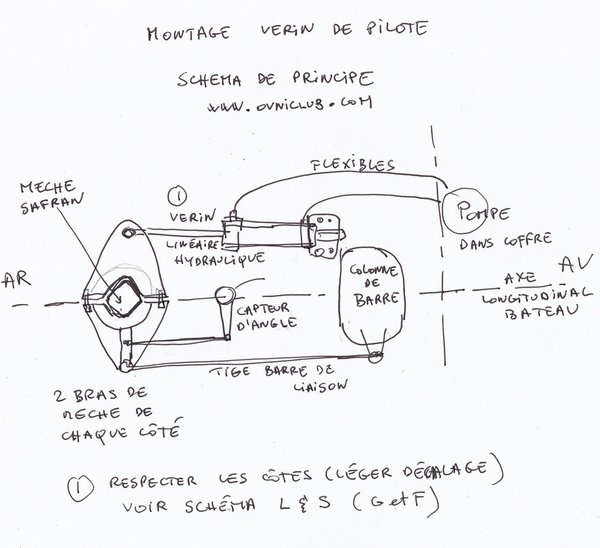 MONTAGE VERIN DE PILOTE
SCHEMA DE PRINCIPE
www.OVNICLUB.COM
FLEXIBLES
MECHE
SAFRAN
①
VERIN
LINÉAIRE
HYDRAULIQUE
POMPE
DANS COFFRE
AR
CAPTEUR
D'ANGLE
COLONNE
DE
BARRE
AXE
LONGITUDINAL
BATEAU
AV
TIGE BARRE DE
LIAISON
2 BRAS DE
MECHE DE
CHAQUE CÔTÉ
① RESPECTER LES CÔTES (LÉGER DÉCALAGE)
VOIR SCHÉMA L & S (G et F)